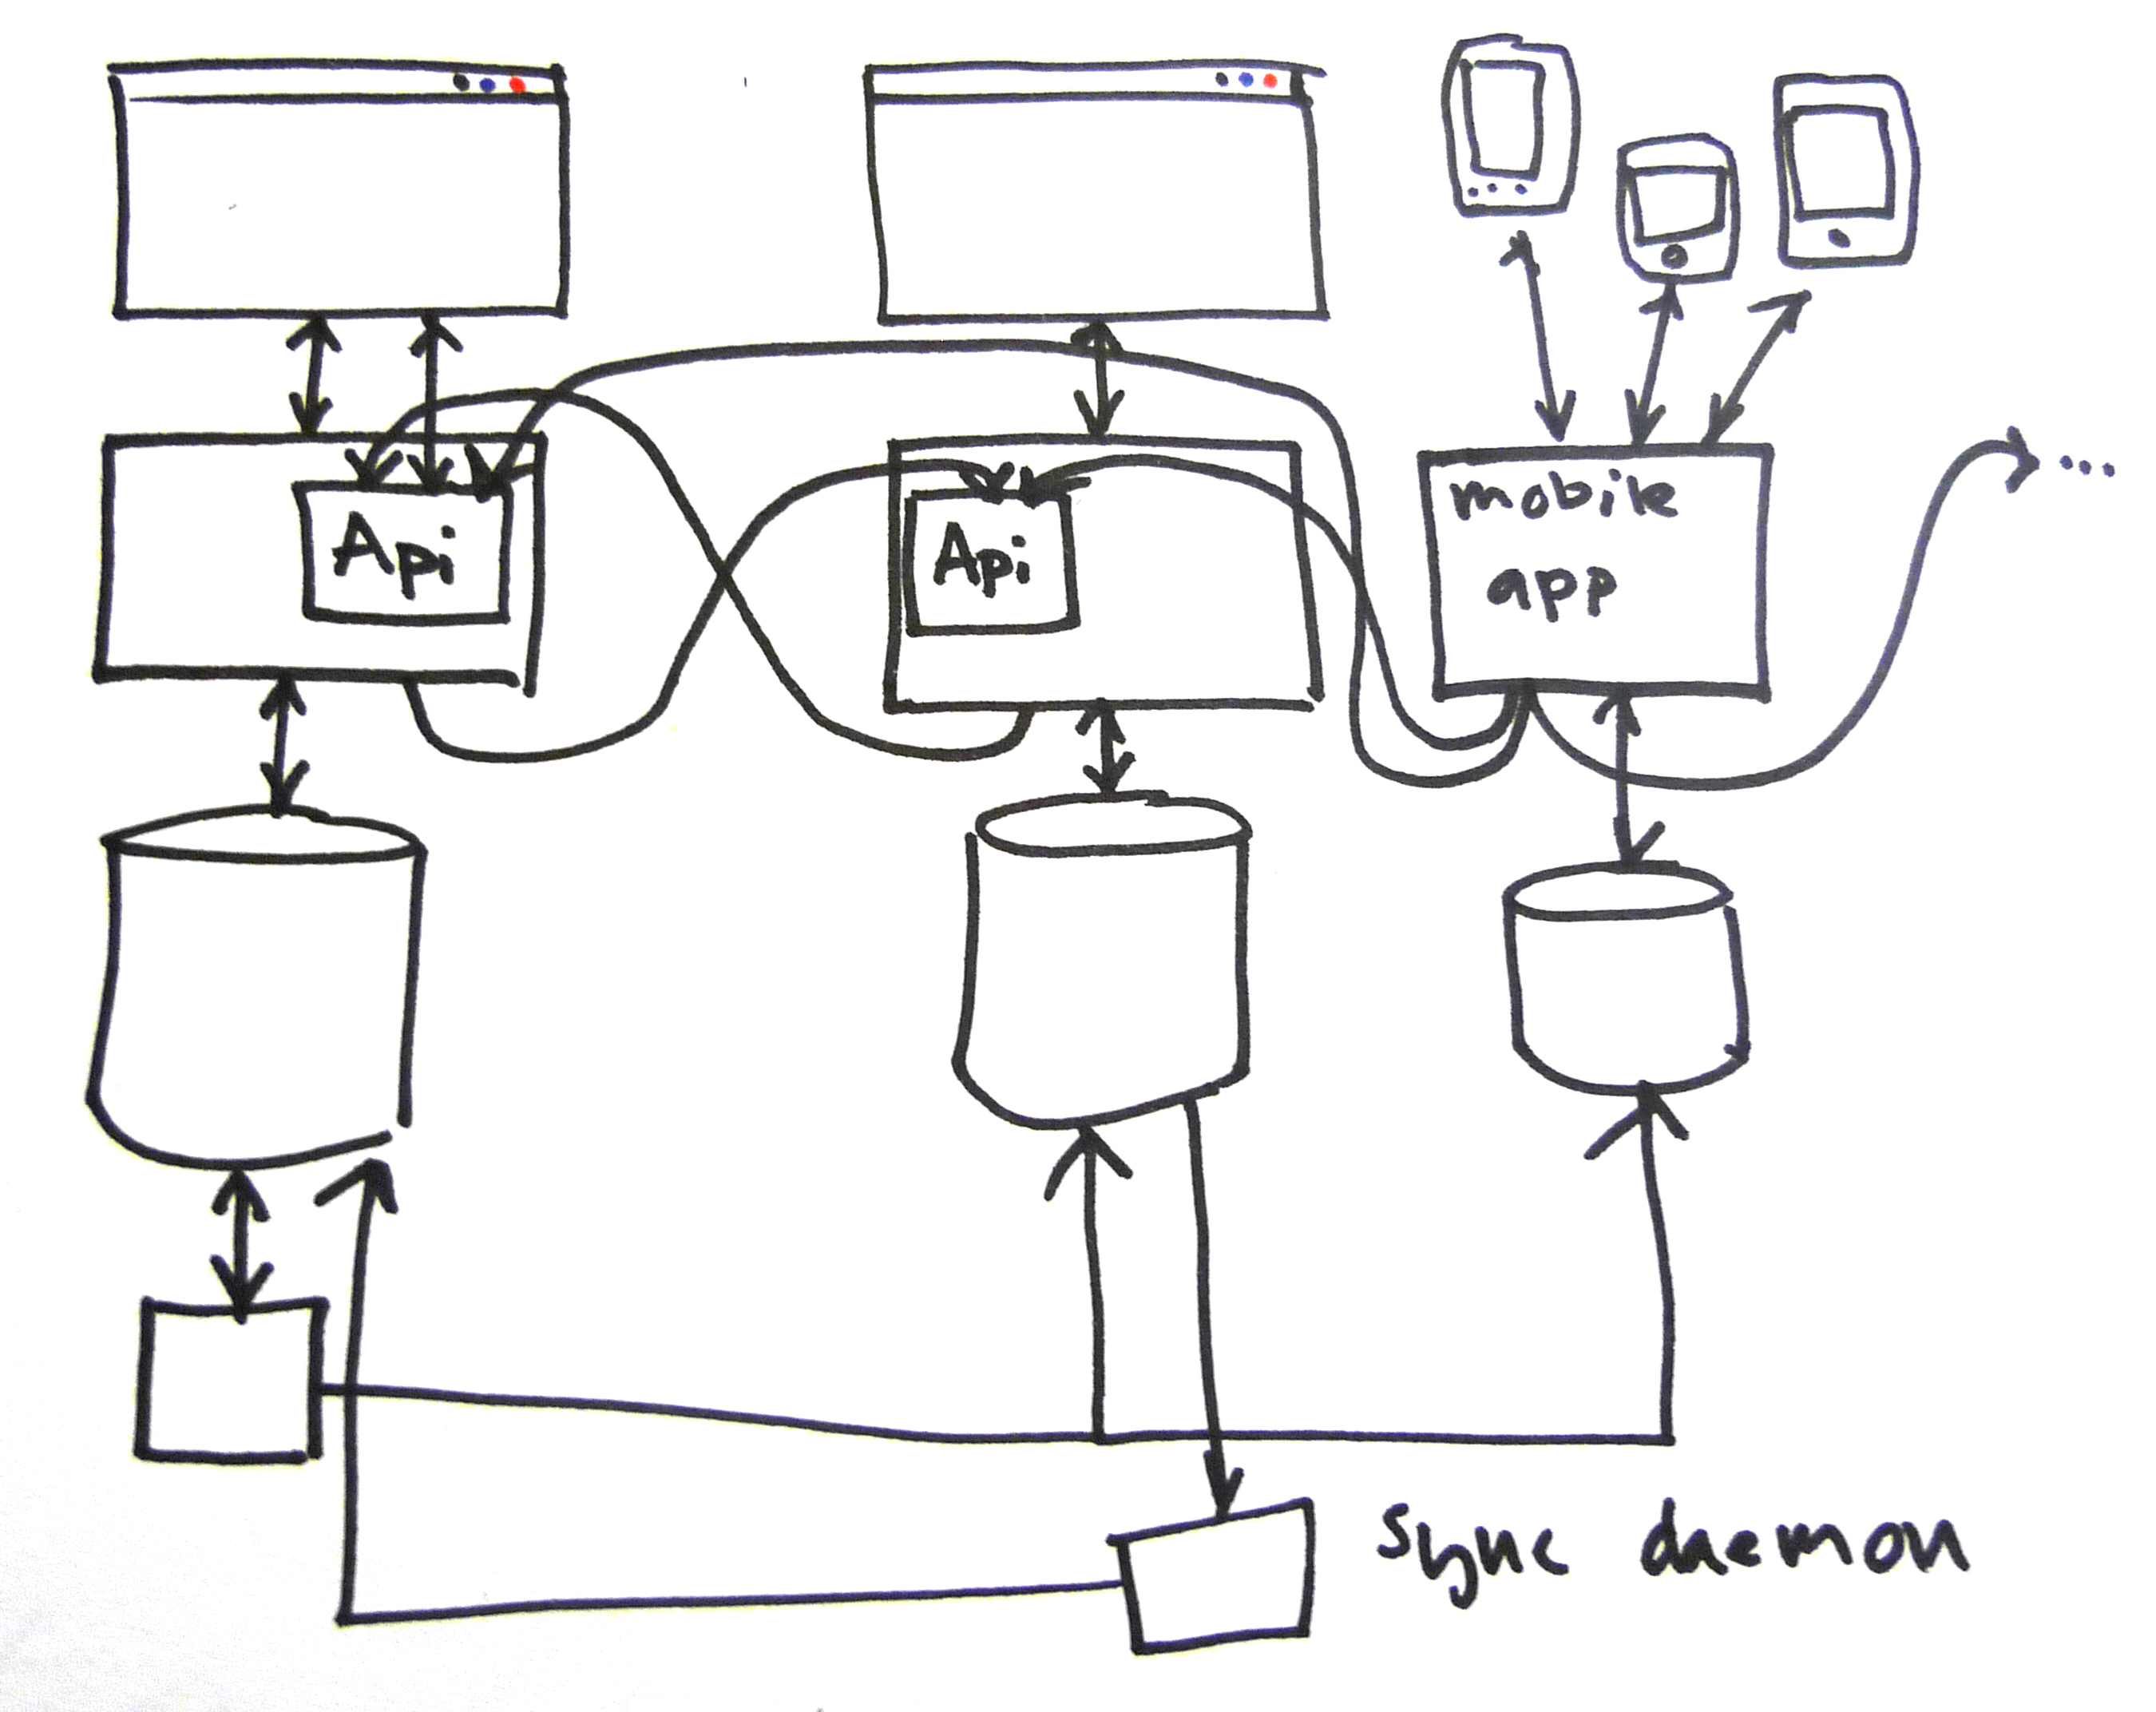 Api
Api
mobile
app
...
sync daemon